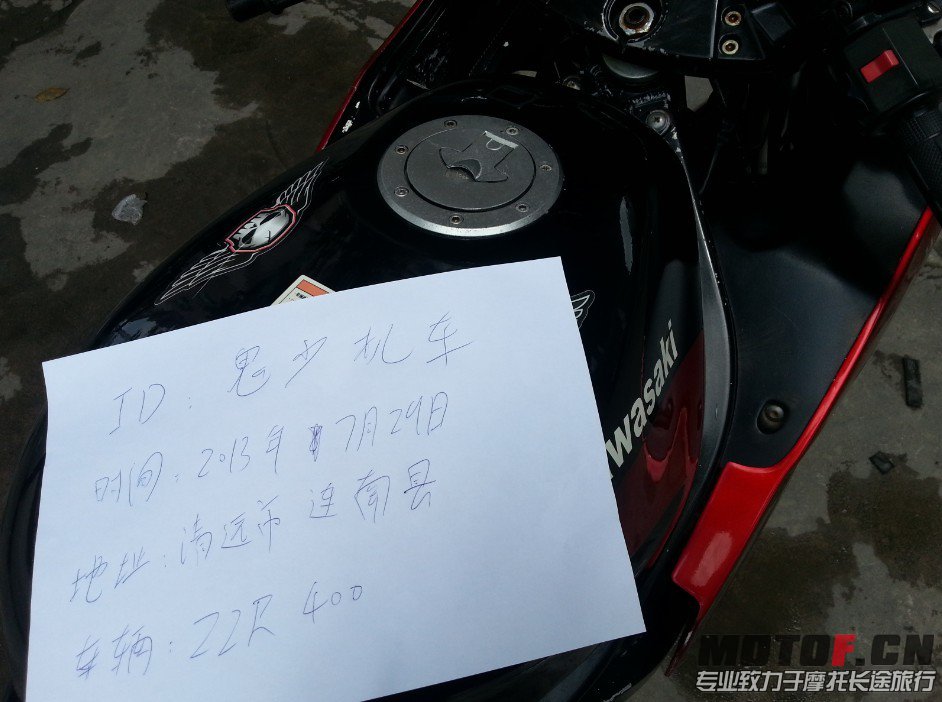 ID:鬼少机车
时间:2013年7月29日
地址:清远市连南县
车辆:ZZR 400
Kawasaki
MOTOF.CN
专业致力于摩托长途旅行